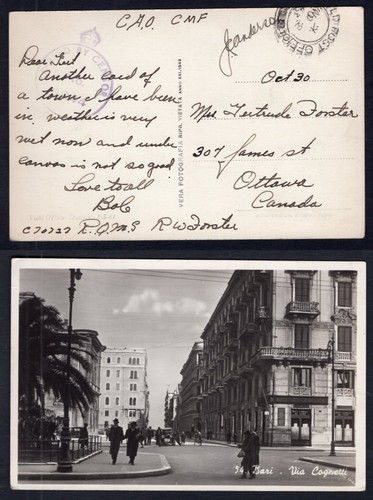 C.A.O. CMF
FIELD POST OFFICE
Oct 30
Dear Gert
Another card of
a town I have been
in. weather is very
wet now and under
canvas is not so good
Love to all
Bob
C70737 R.Q.M.S RW Forster
VERA FOTOGRAFIA RIPR. VIETATA
Mrs Gertrude Forster
307 James st
Ottawa
Canada
Bari - Via Cognetti